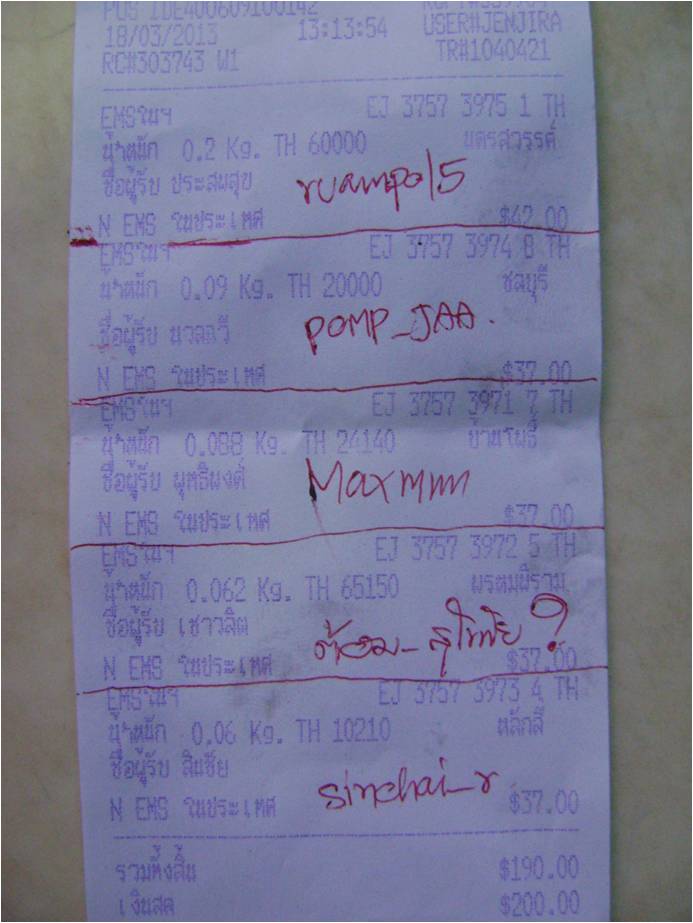 POS IDE400609100142
18/03/2013 13:13:54 USER#JENJIRA
RC#303743 W1 TR#1040421
EMSในฯ EJ 3757 3975 1 TH
น้ำหนัก 0.2 Kg. TH 60000 นครสวรรค์
ชื่อผู้รับ ประสมสุข ruampol5
N EMS ในประเทศ $42.00
EMSในฯ EJ 3757 3974 8 TH
น้ำหนัก 0.09 Kg. TH 20000 ชลบุรี
ชื่อผู้รับ นวลฉวี POMP_JAA.
N EMS ในประเทศ $37.00
EMSในฯ EJ 3757 3971 7 TH
น้ำหนัก 0.088 Kg. TH 24140 บ้านโพธิ์
ชื่อผู้รับ ยุทธิพงศ์ Maxmnn
N EMS ในประเทศ $37.00
EMSในฯ EJ 3757 3972 5 TH
น้ำหนัก 0.062 Kg. TH 65150 พรหมพิราม
ชื่อผู้รับ เชาวลิต ต้อม_สุโขทัย ?
N EMS ในประเทศ $37.00
EMSในฯ EJ 3757 3973 4 TH
น้ำหนัก 0.06 Kg. TH 10210 หลักสี่
ชื่อผู้รับ สินชัย sinchai_r
N EMS ในประเทศ $37.00
รวมทั้งสิ้น $190.00
เงินสด $200.00